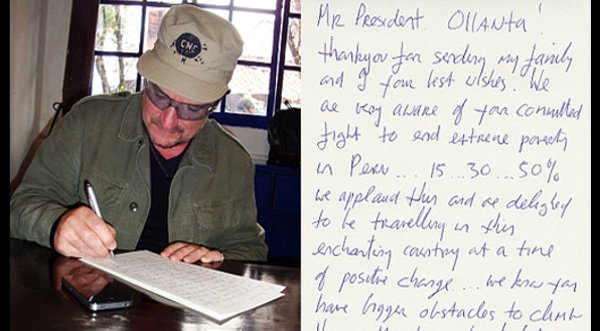 CHE
Mr President. Ollanta!
thankyou for sending my family
and I your best wishes. We
are very aware of your committed
fight to end extreme poverty
in Peru.... 15...30...50%
we applaud this and are delighted
to be travelling in this
enchanting country at a time
of positive change.... we know you
have bigger obstacles to climb